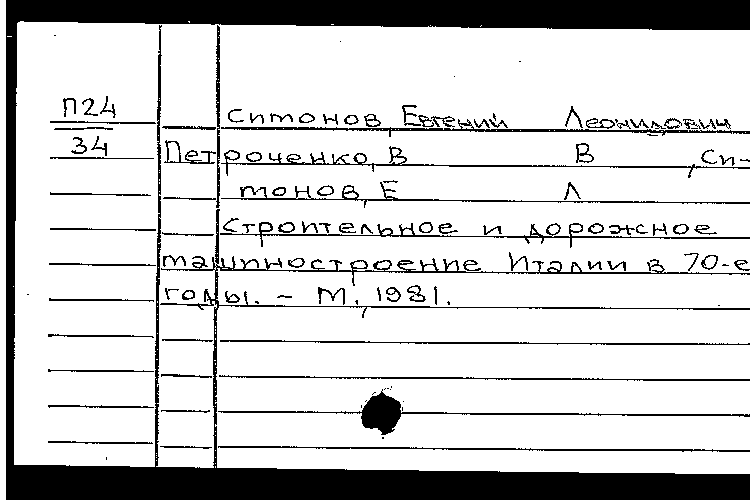 П24
34
Ситонов, Евгений Леонидович
Петроченко, В В , Си-
тонов, Е Л
Строительное и дорожное
машиностроение Италии в 70-е
годы. - М., 1981.